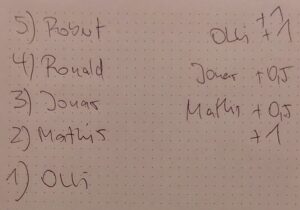 5) Robert
4) Ronald
3) Jonas
2) Mathis
1) Olli
+1
Olli +1
Jonas +0,5
Mathis +0,5
+1